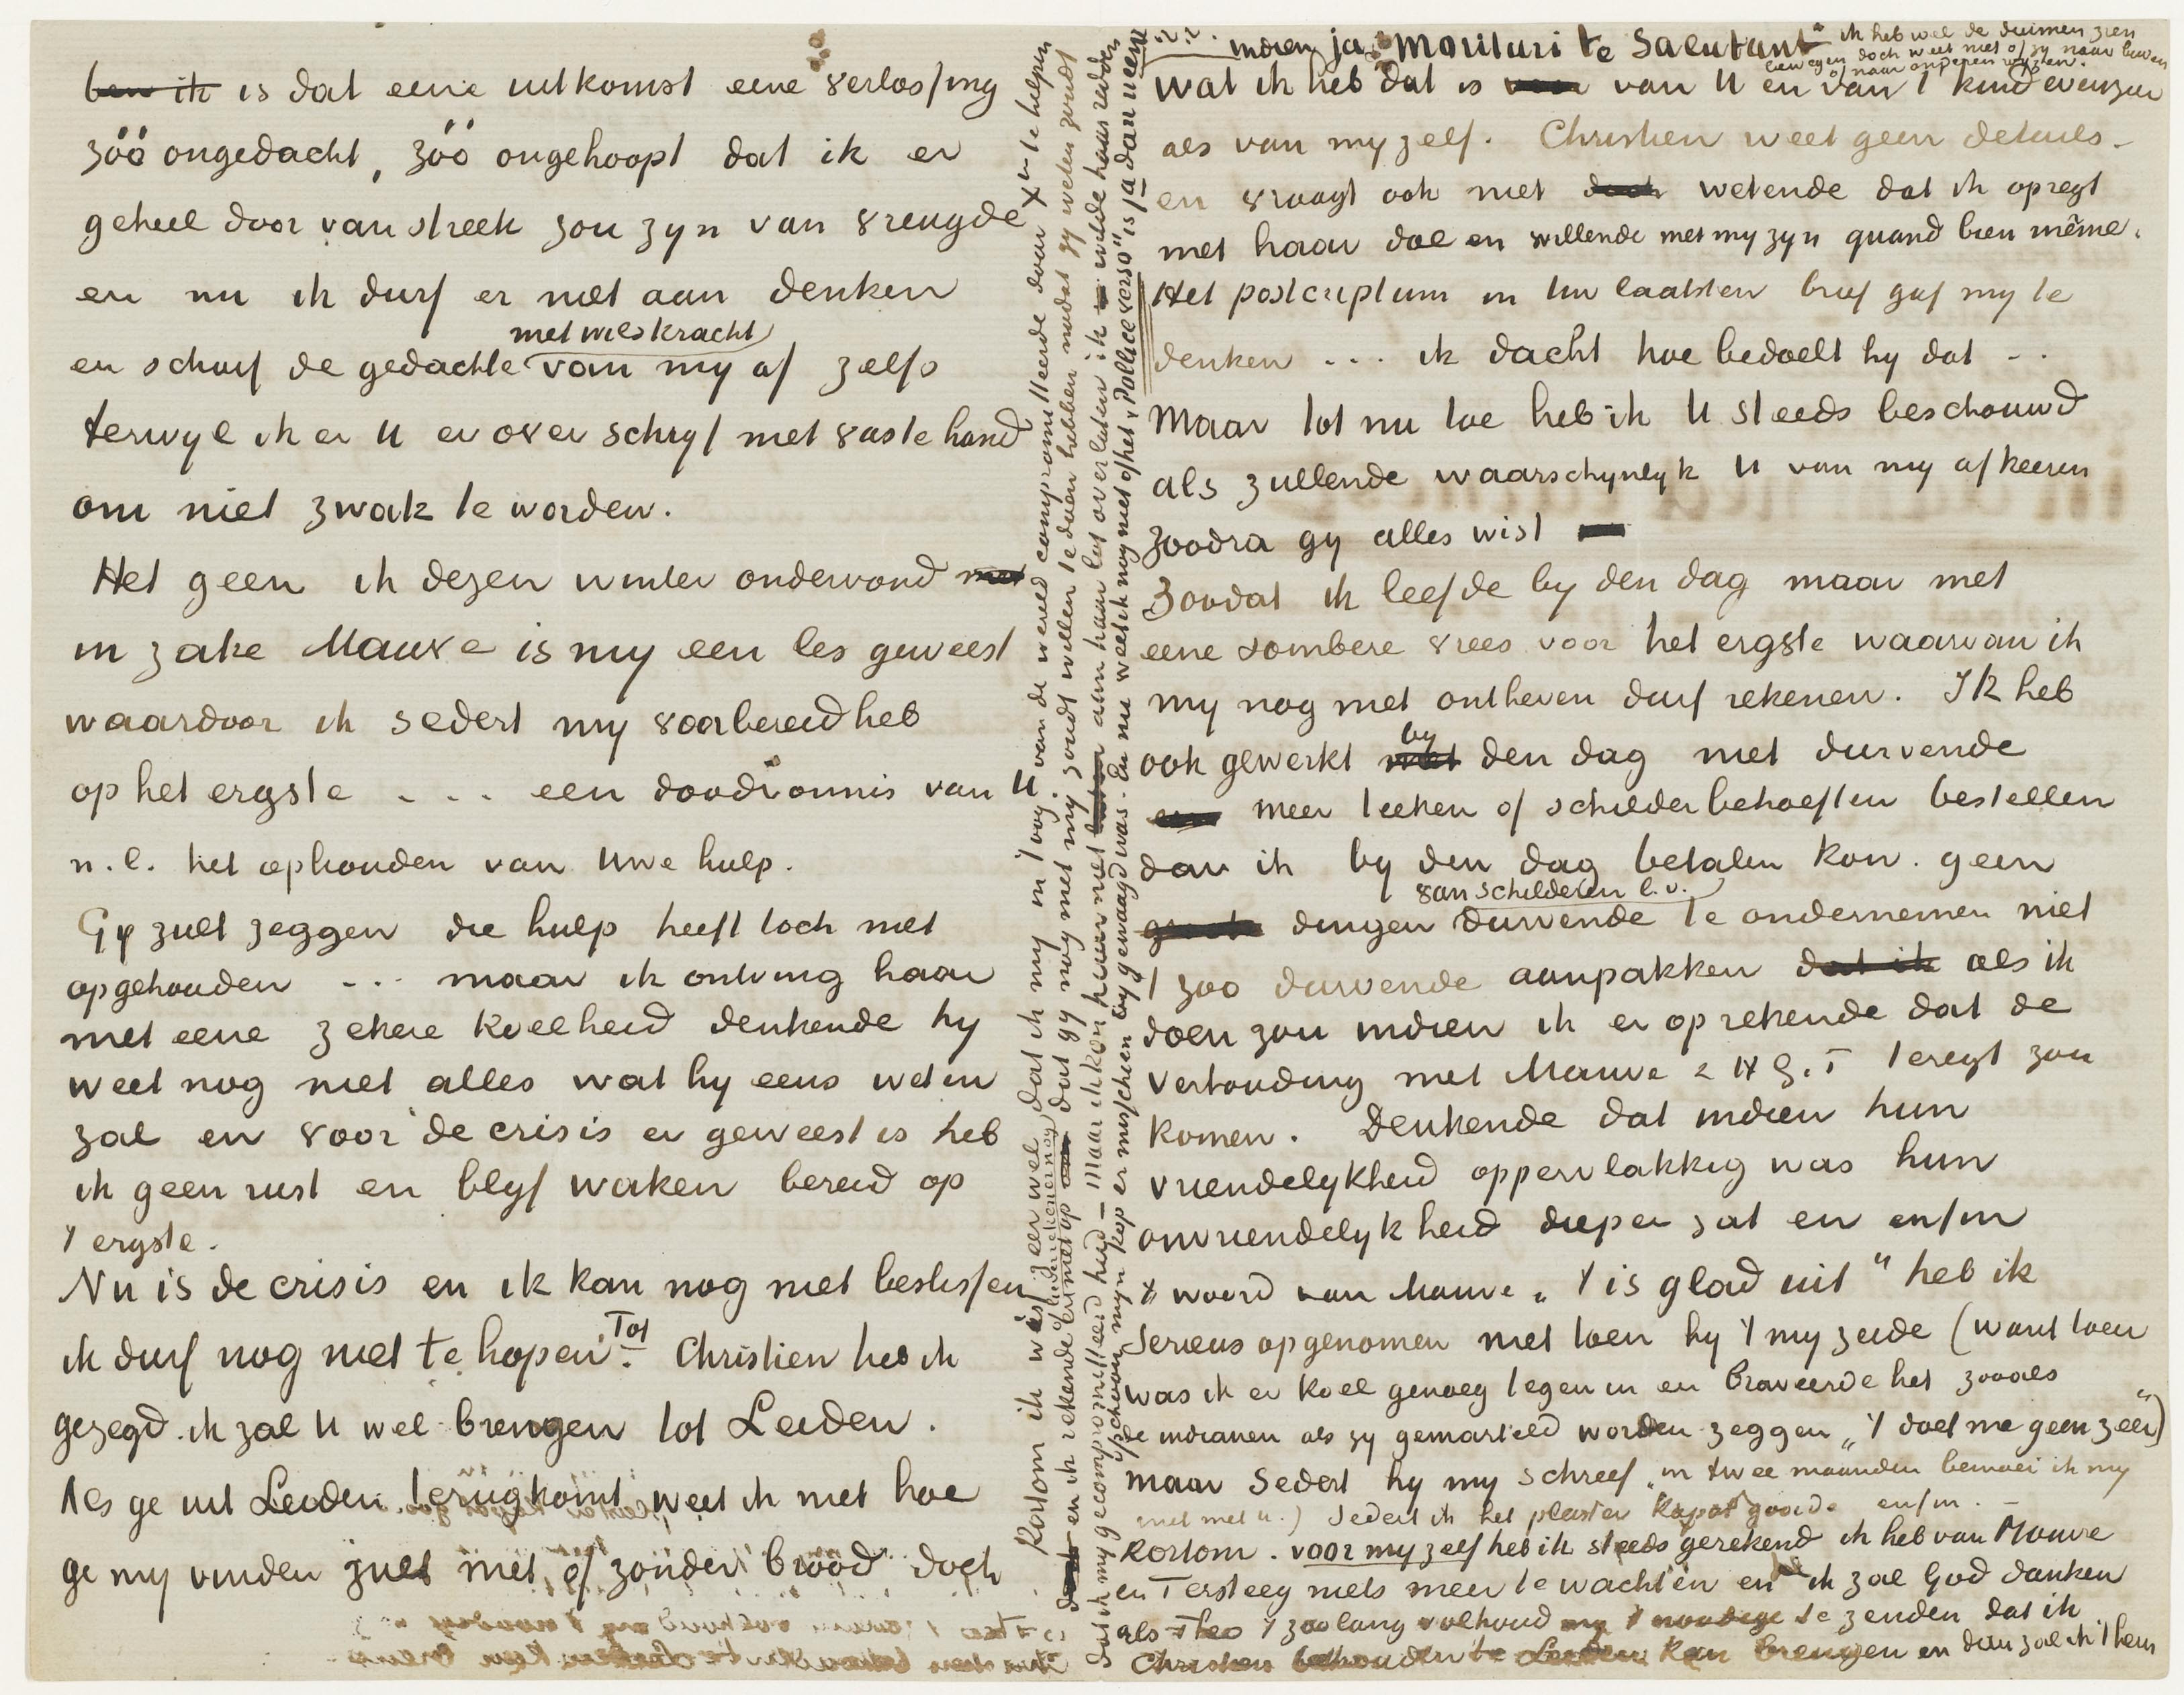 ben ik is dat eene uitkomst eene verlossing
zóó ongedacht, zóó ongehoopt dat ik er
geheel door van streek zou zyn van vreugde
en nu ik durf er niet aan denken
met wilskracht
en schuif de gedachte van my af zelfs
terwyl ik er U er over schryf met vaste hand
om niet zwak te worden.
Het geen ik dezen winter ondervond met
in zake Mauve is my een les geweest
waardoor ik sedert my voorbereid heb
op het ergste . . . een doodvonnis van U.
n.l. het ophouden van Uwe hulp.
Gy zult zeggen die hulp heeft toch niet
opgehouden ... maar ik ontving haar
met eene zekere koelheid denkende hy
weet nog niet alles wat hy eens weten
zal en voor de crisis er geweest is heb
ik geen rust en blyf waken bereid op
't ergste.
Nu is de crisis en ik kan nog niet beslissen
ik durf nog niet te hopen. Tot Christien heb ik
gezegd. ik zal U wel brengen tot Leiden.
Als ge uit Leiden terugkomt weet ik niet hoe
ge my vinden zult met of zonder brood doch
Kortom ik was zeer wel dat ik my in 't oog van de wereld compromitteerde door X in te helpen
en ik rekende er niet op dat gy nog met my zoudt willen te doen hebben nadat gy weten zoudt
dat ik my gecompromitteerd had – maar ik kon haar niet aan haar lot overlaten ik wilde haar redden
ofschoon myn kop er misschien by gewaagd was. En nu weet ik nog niet of het „Pollice verso" is ja dan neen
indien ja „Morituri te salutant" ik heb wel de duimen zien
bewegen doch weet niet of zy naar boven
of naar onderen wyzen.
wat ik heb dat is van U en van 't kind evenzeer
als van my zelf. Christien weet geen details –
en vraagt ook niet doch wetende dat ik opregt
met haar doe en willende met my zyn quand bien même.
Het postcriptum in Uw laatsten brief gaf my te
denken ... ik dacht hoe bedoelt hy dat ..
Maar tot nu toe heb ik U steeds beschouwd
als zullende waarschynlyk U van my afkeeren
zoodra gy alles wist
Zoodat ik leefde by den dag maar met
eene sombere vrees voor het ergste waarvan ik
my nog niet ontheven durf rekenen. Ik heb
by
ook gewerkt met den dag niet durvende
meer teeken of schilderbehoeften bestellen
dan ik by den dag betalen kon. geen
van schilderen b.v.
groote dingen durvende te ondernemen niet
't zoo durvende aanpakken dat ik als ik
doen zou indien ik er op rekende dat de
verhouding met Mauve & H.G.T teregt zou
komen. Denkende dat indien hun
vriendelykheid oppervlakkig was hun
onvriendelykheid dieper zat en enfin
't woord van Mauve „'t is glad uit" heb ik
serieus opgenomen niet toen hy 't my zeide (want toen
was ik er koel genoeg tegen in en braveerde het zooals
de indianen als zy gemarteld worden zeggen „'t doet me geen zeer")
maar sedert hy my schreef „in twee maanden bemoei ik my
niet met u.) Sedert ik het pleister kapot gooide enfin. –
Kortom. voor my zelf heb ik steeds gerekend ik heb van Mauve
en Tersteeg niets meer te wachten en ik zal God danken
als Theo 't zoolang volhoud my 't noodige te zenden dat ik
Christien behouden te Leiden kan brengen en dan zal ik 't hem